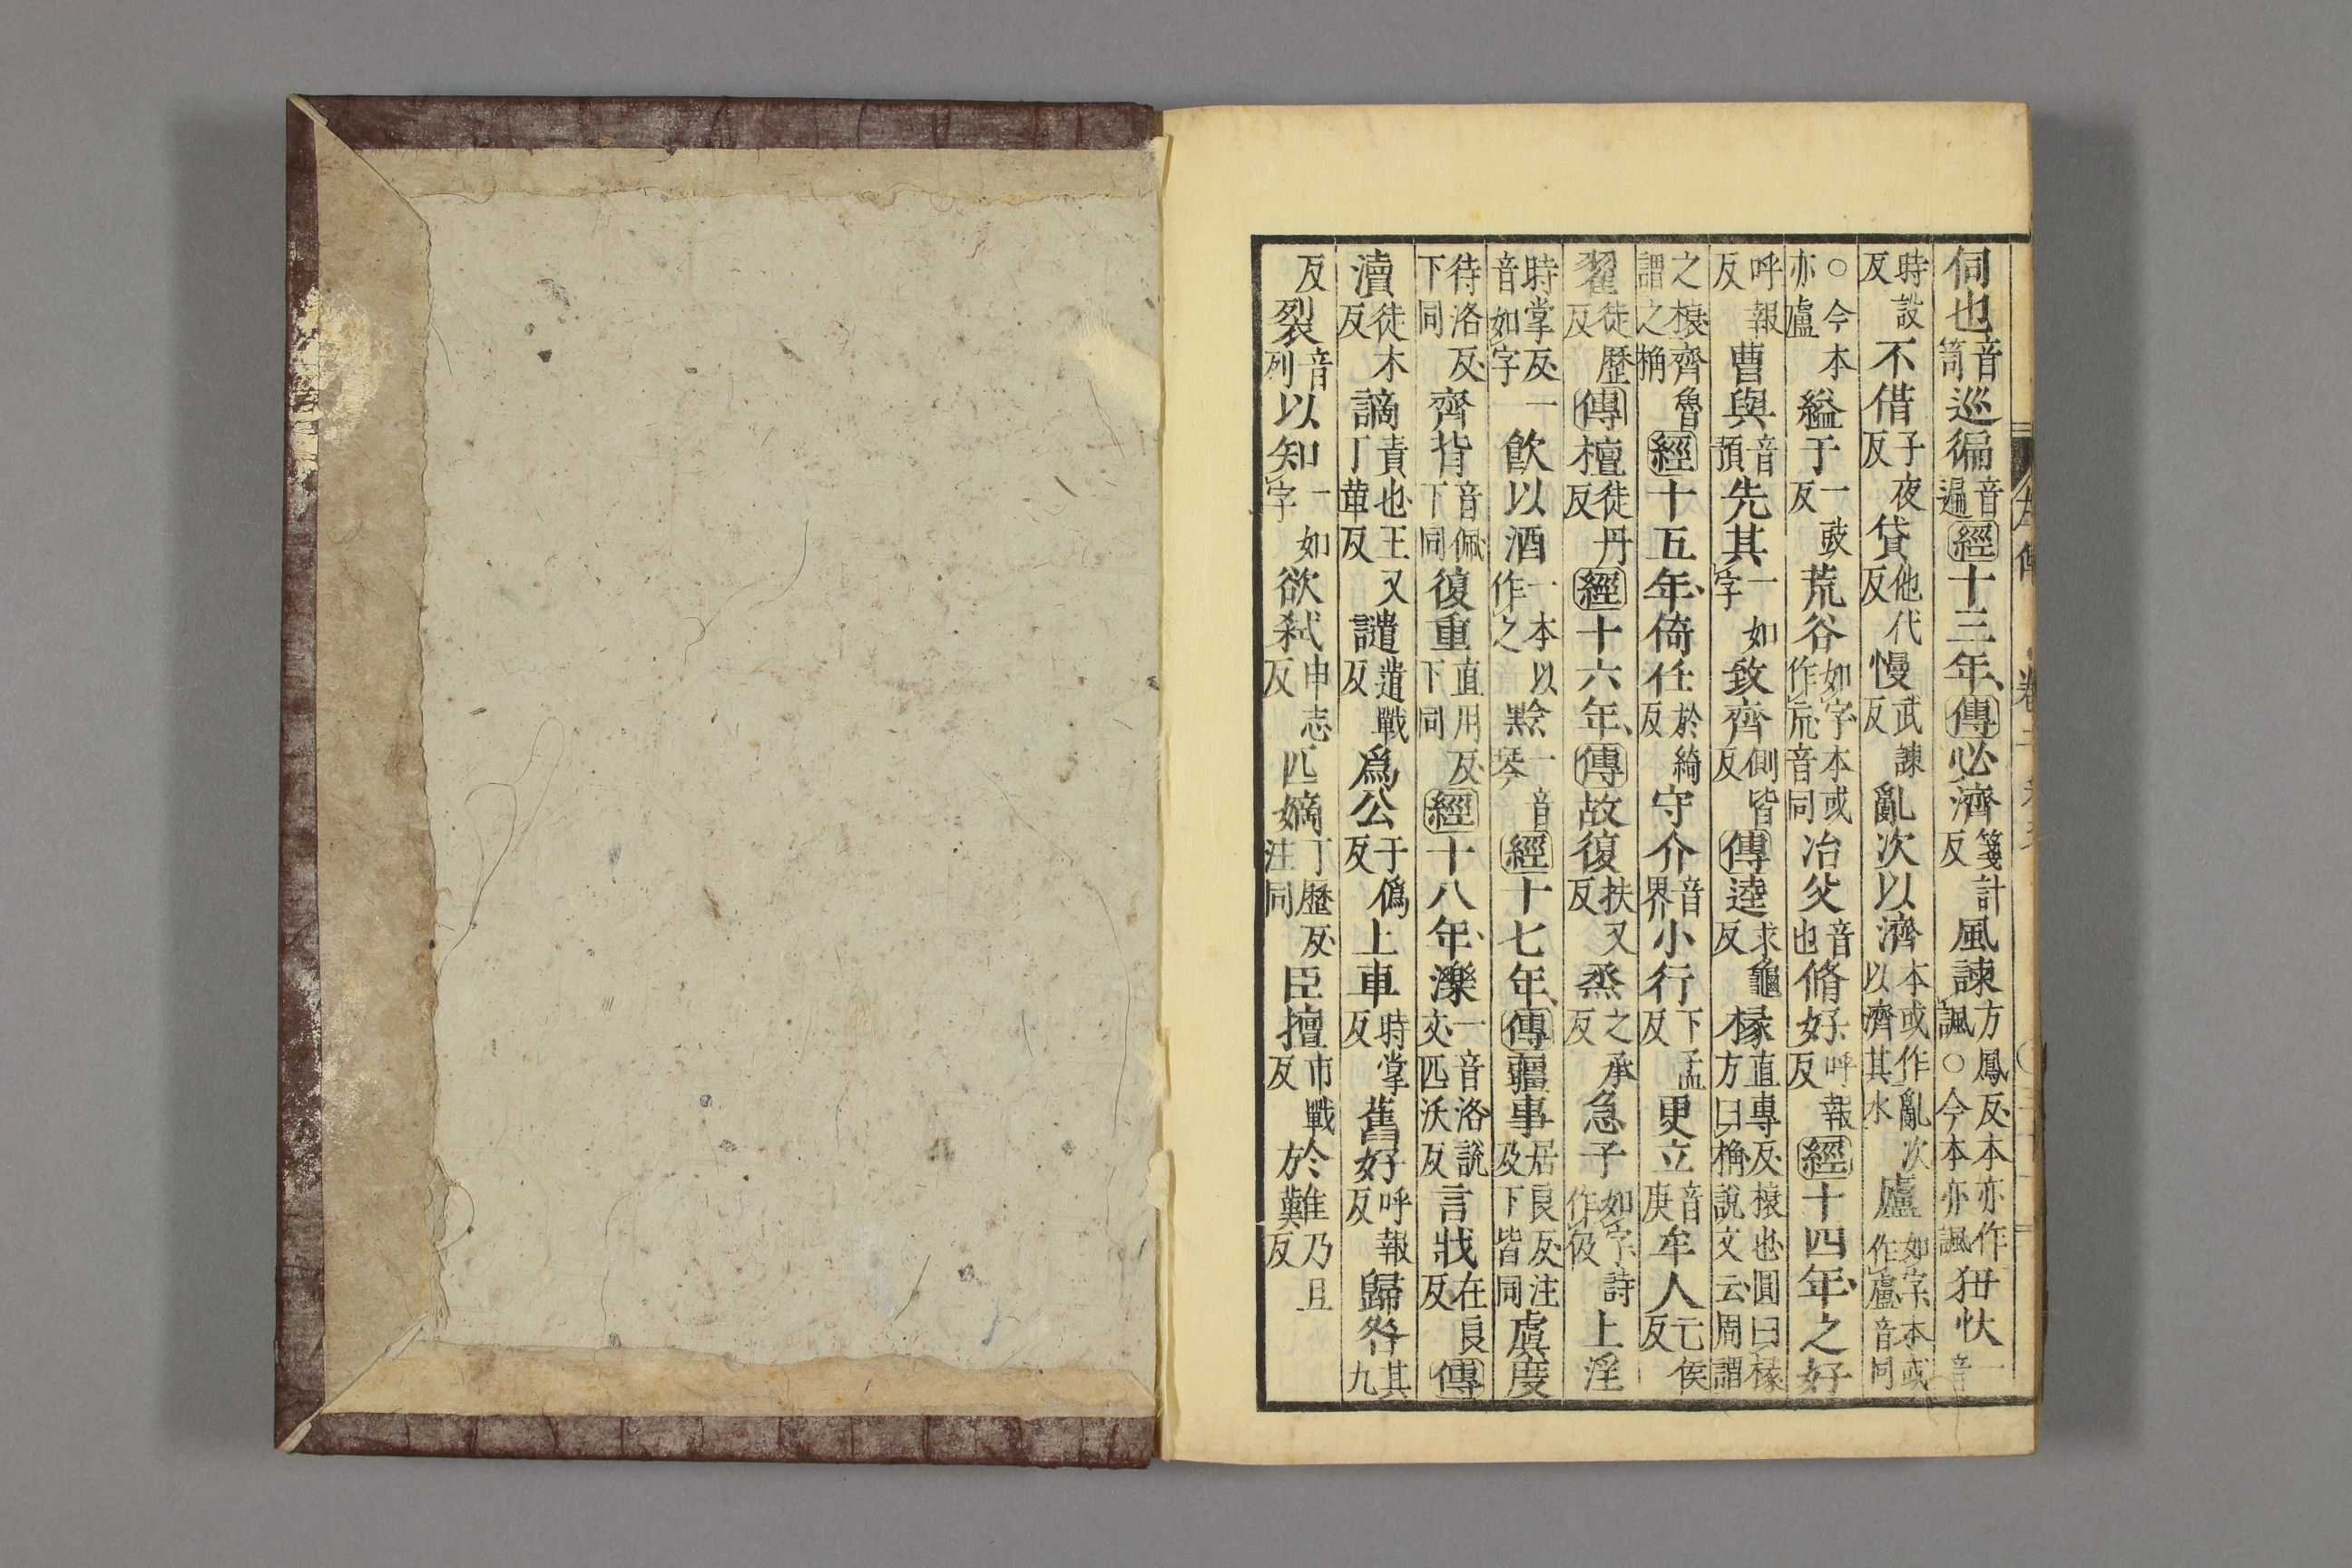 伺也音笥巡徧音遍經十三年傳必濟箋計反風諫方鳳反本亦作諷○今本亦諷狃忕一音
時設反不借子夜反貸他代反慢武諫反亂次以濟本或作亂次以濟其水廬如字本或作廬音同
○今本亦廬縊于一豉反荒谷如字本或作㡃音同冶父音也脩好呼報反經十四年之好
呼報反曹與音預先其一如字致齊側皆反傳逵求龜反椽直專反榱也圓曰椽方曰桷說文云周謂
之榱齊魯謂之桷經十五年倚任於綺反守介音界小行下孟反更立音庚牟人亡侯反
翟徒歷反傳檀徒丹反經十六年傳故復扶又反烝之承反急子如字詩作伋上淫
時掌反一音如字飲以酒一本以作之黔一音琴經十七年傳疆事居良反注及下皆同虞度
待洛反下同齊背音佩下同復重直用反下同經十八年濼一音洛說文匹沃反言戕在良反傳
瀆徒木反謫責也王又丁革反譴遣戰反爲公于僞反上車時掌反舊好呼報反歸咎其九
反裂音列以知一如字欲弒申志反匹嫡丁歷反注同臣擅市戰反於難乃旦反